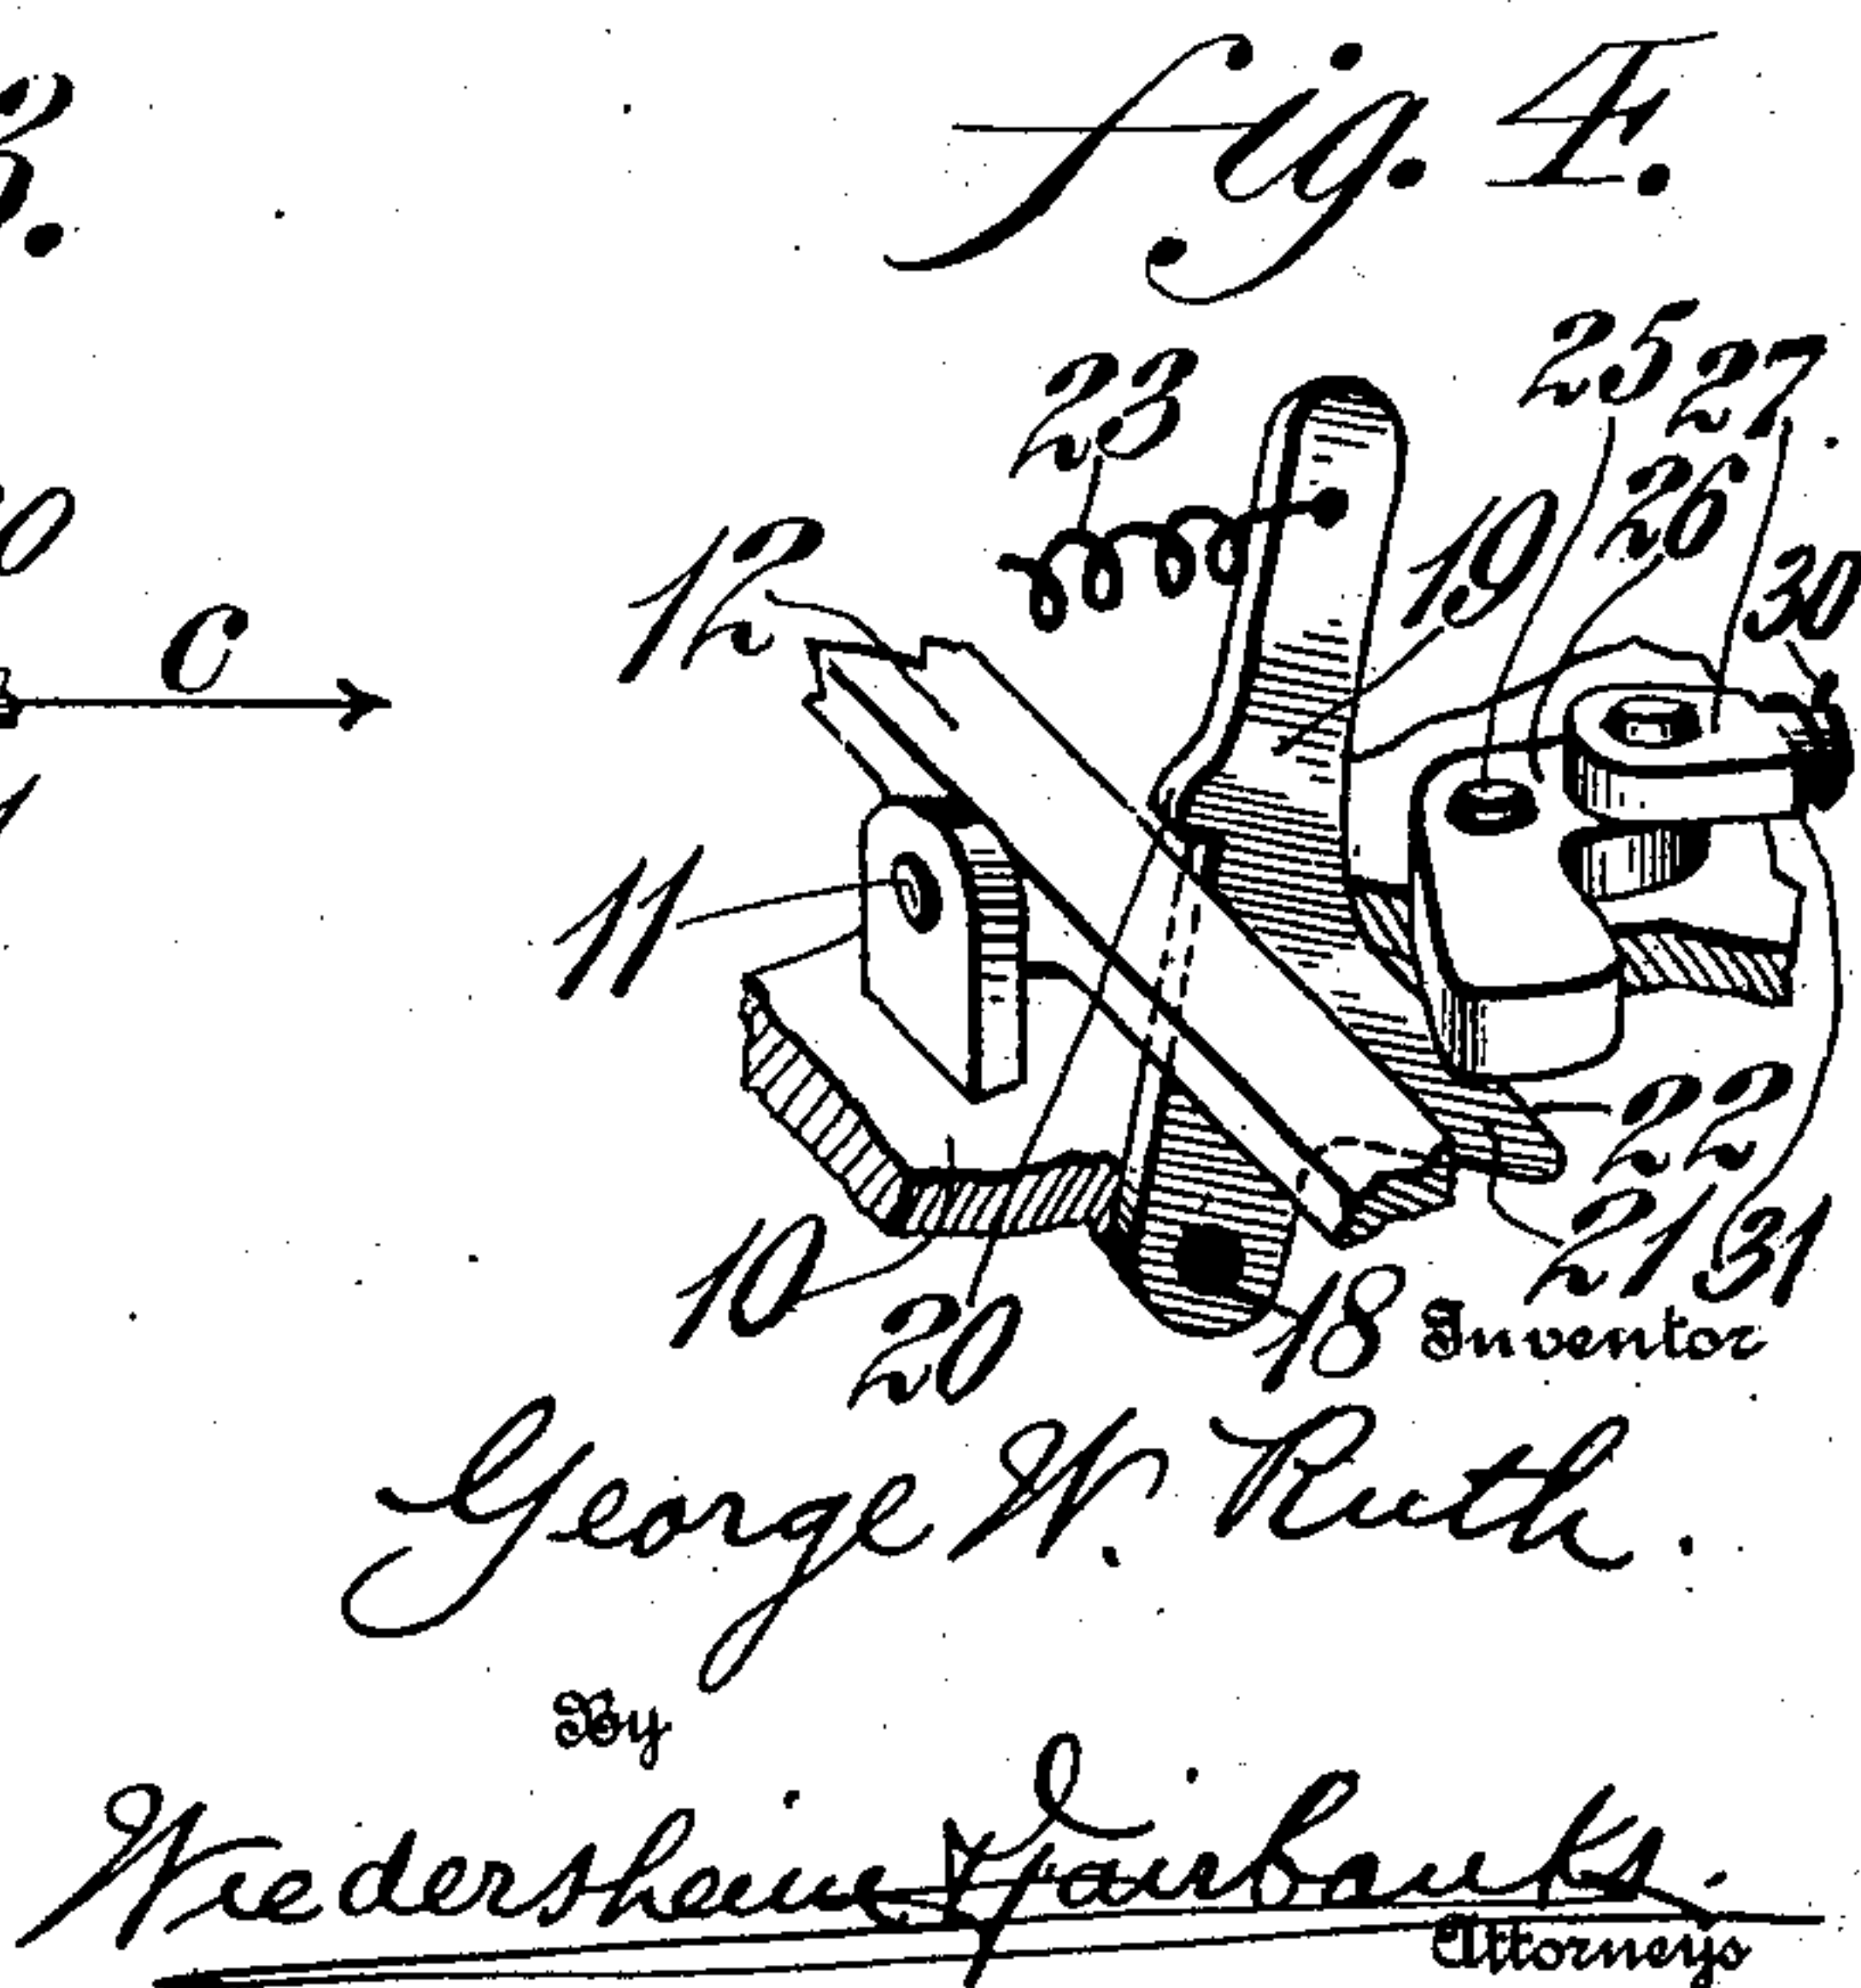 Fig. 4.
25 27.
23
26
19
12
30
C
11
22
21 31
10
20
18
Inventor
George W. Ruth.
By
Niedersheim & Fairbanks.
Attorneys